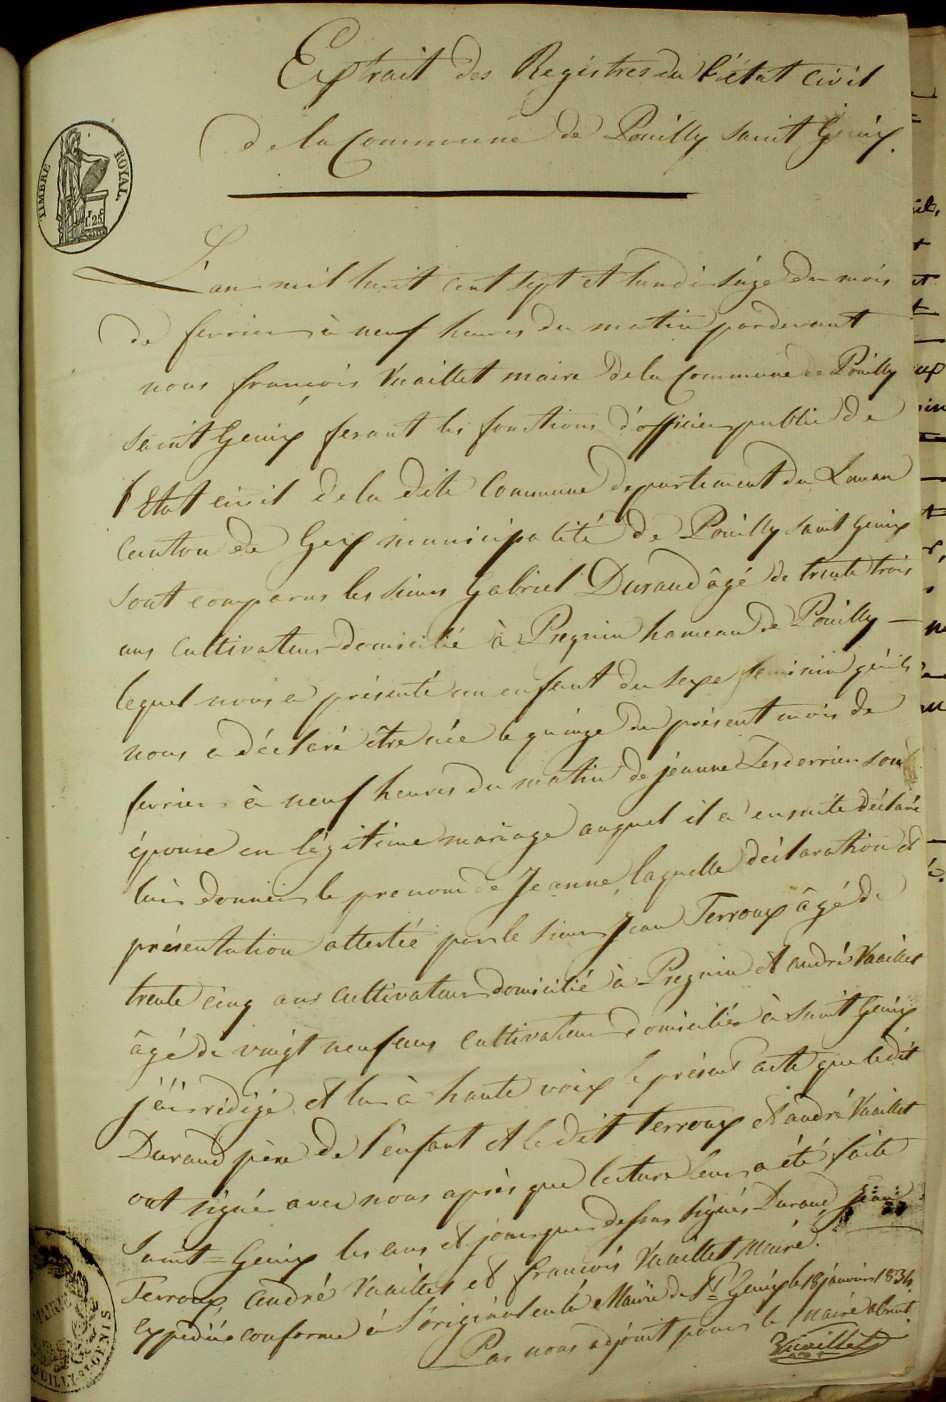 Extrait des Registres du l'état civil
de la Commune de Pouilly saint Genix.
TIMBRE ROYAL
L'an mil huit cent sept et lundi sèze du mois
de fevrier à neuf heures du matin pardevant
nous françois Vuaillet maire de la Commune de Pouilly
saint Genix fesant les fonctions d'officier public de
l'Etat civil de la dite Commune departement du Leman
Canton de Gex municipalité de Pouilly saint Genix
sont comparus les sieurs Gabriel Durand âgé de trente trois
ans cultivateur domicilié à Pregnin hameau de Pouilly —
lequel nous a présenté un enfant du sexe feminin qu'il
nous a déclaré être née le quinze du présent mois de
fevrier à neuf heures du matin de jeanne son
épouse en légitime mariage auquel il a ensuite déclaré
lui donner le prenom de Jeanne, laquelle déclaration et
présentation attestée par le sieur Jean Terroux âgé de
trente cinq ans cultivateur domicilié à Pregnin et andré Vuaillet
âgé de vingt neuf ans cultivateur domicilié à Saint Genix
j'ai rédigé et lu à haute voix le présent acte que ledit
Durand père de l'enfant et le dit Terroux et andré Vuaillet
ont signé avec nous après que lecture leur a été faite
Saint=Genix les ans et jour que dessus signés Durand Jean
Terroux, andré Vuaillet et françois Vuaillet Maire.
Expédiée conforme à l'original en la Mairie de St Genix le 18 janvier 1834
Par nous adjoint pour le Maire absent.
Vuaillet
MAIRIE
POUILLY-ST-GENIS